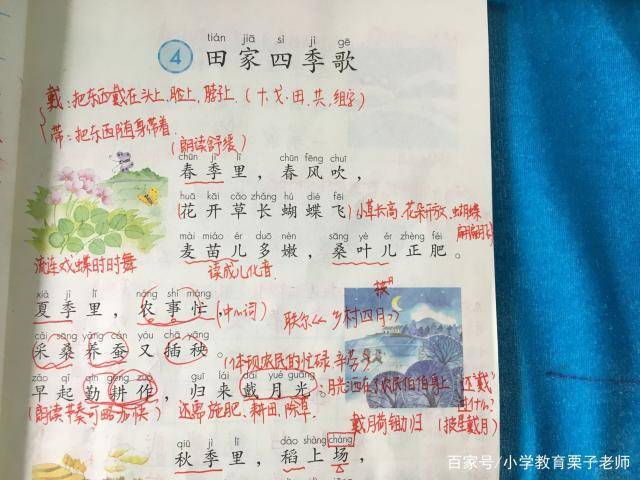 tián jiā sì jì gē
4 田家四季歌
戴:把东西戴在头上、脸上、脖子上.(十、戈、田、共,组字)
带:把东西随身带着.
(朗读舒缓)
chūn jì lǐ chūn fēng chuī
春季里,春风吹,
huā kāi cǎo zhǎng hú dié fēi
花开草长蝴蝶飞 (小草长高、花朵开放、蝴蝶
mài miáo ér duō nèn sāng yè ér zhèng féi
麦苗儿多嫩,桑叶儿正肥。
流连戏蝶时时舞
读成儿化音
xià jì lǐ nóng shì máng
夏季里,农事忙,(中心词)
联系《乡村四月》
cǎi sāng yǎng cán yòu chā yāng
采桑养蚕又插秧。
(体现农民的忙碌、辛苦)
zǎo qǐ qín gēng zuò guī lái dài yuè guāng
早起勤耕作,归来戴月光。月光洒在了农民伯伯身上
还戴
什么?
(朗读节奏可略加快)
还需施肥、耕田、除草.
戴月荷锄归
(披星戴月)
qiū jì lǐ dào shàng cháng
秋季里,稻上场,
百家号/小学教育栗子老师